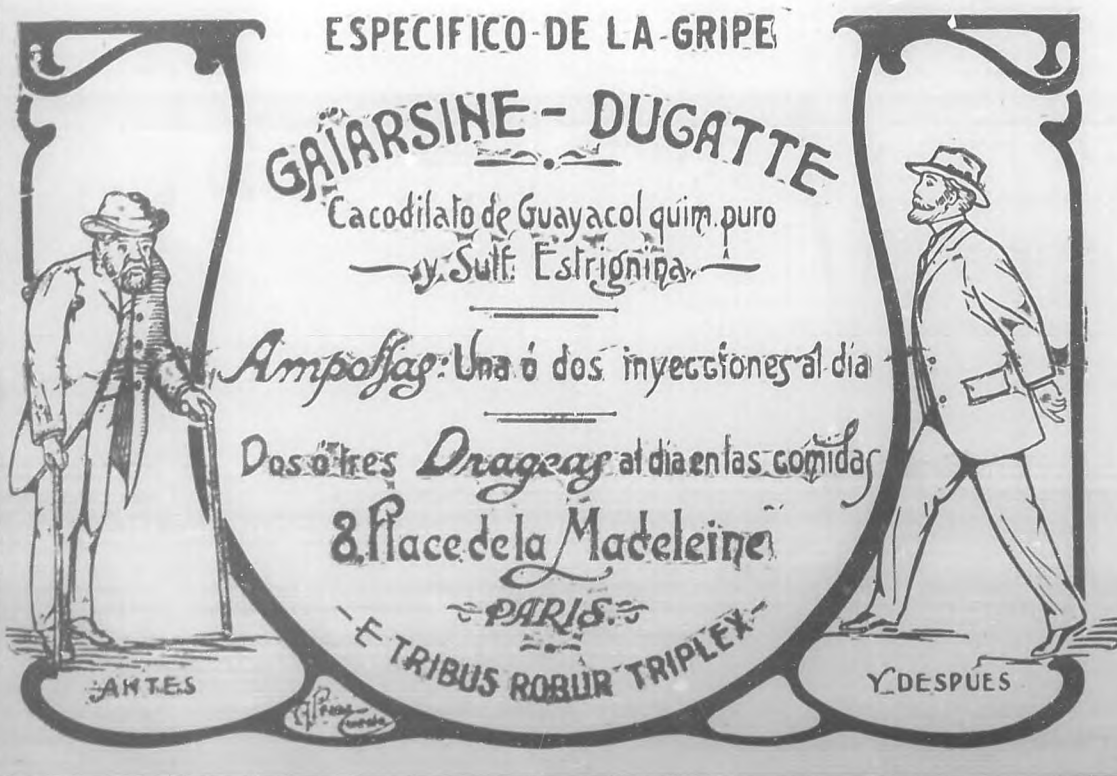 ESPECIFICO-DE LA-GRIPE
GAÏARSINE - DUGATTE
Cacodilato de Guayacol quim. puro
y Sulf. Estrignina
Ampollas: Una ó dos inyecciones al dia
Dos ó tres Drageas al dia en las comidas
8. Place de la Madeleine
PARIS.
E TRIBUS ROBUR TRIPLEX
ANTES
Y DESPUES